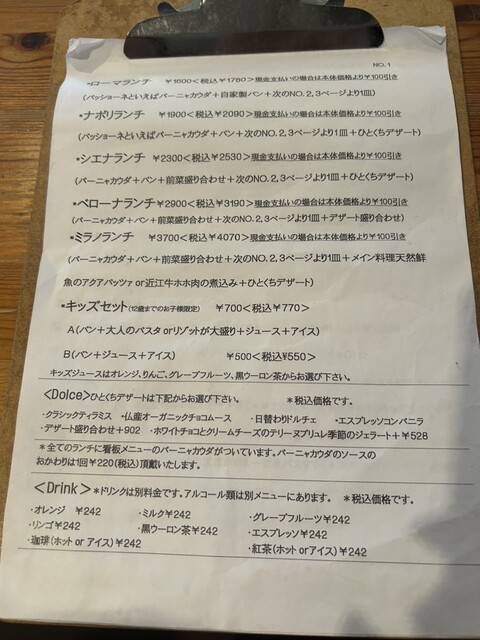 NO.1
・ローマランチ ¥1600<税込¥1760>現金支払いの場合は本体価格より¥100引き
(パッショーネといえばバーニャカウダ+自家製パン+次のNO.2,3ページより1皿)
・ナポリランチ ¥1900<税込¥2090>現金支払いの場合は本体価格より¥100引き
(パッショーネといえばバーニャカウダ+パン+次のNO.2,3ページより1皿+ひとくちデザート)
・シエナランチ ¥2300<税込¥2530>現金支払いの場合は本体価格より¥100引き
(バーニャカウダ+パン+前菜盛り合わせ+次のNO.2,3ページより1皿+ひとくちデザート)
・ベローナランチ¥2900<税込¥3190>現金支払いの場合は本体価格より¥100引き
(バーニャカウダ+パン+前菜盛り合わせ+次のNO.2,3ページより1皿+デザート盛り合わせ)
・ミラノランチ ¥3700<税込¥4070>現金支払いの場合は本体価格より¥100引き
(バーニャカウダ+パン+前菜盛り合わせ+次のNO.2,3ページより1皿+メイン料理天然鮮
魚のアクアパッツァor近江牛ホホ肉の煮込み+ひとくちデザート)
・キッズセット(12歳までのお子様限定) ¥700<税込¥770>
A(パン+大人のパスタorリゾットが大盛り+ジュース+アイス)
B(パン+ジュース+アイス) ¥500<税込¥550>
キッズジュースはオレンジ、りんご、グレープフルーツ、黒ウーロン茶からお選び下さい。
<Dolce>ひとくちデザートは下記からお選び下さい。 *税込価格です。
・クラシックティラミス ・仏産オーガニックチョコムース ・日替わりドルチェ ・エスプレッソコンパニラ
・デザート盛り合わせ+902 ・ホワイトチョコとクリームチーズのテリーヌブリュレ季節のジェラート+¥528
*全てのランチに看板メニューのバーニャカウダがついています。バーニャカウダのソースの
おかわりは1回¥220(税込)頂戴いたします。
<Drink>*ドリンクは別料金です。アルコール類は別メニューにあります。 *税込価格です。
・オレンジ ¥242 ・ミルク¥242 ・グレープフルーツ¥242
・リンゴ¥242 ・黒ウーロン茶¥242 ・エスプレッソ¥242
・珈琲(ホット or アイス)¥242 ・紅茶(ホットorアイス)¥242